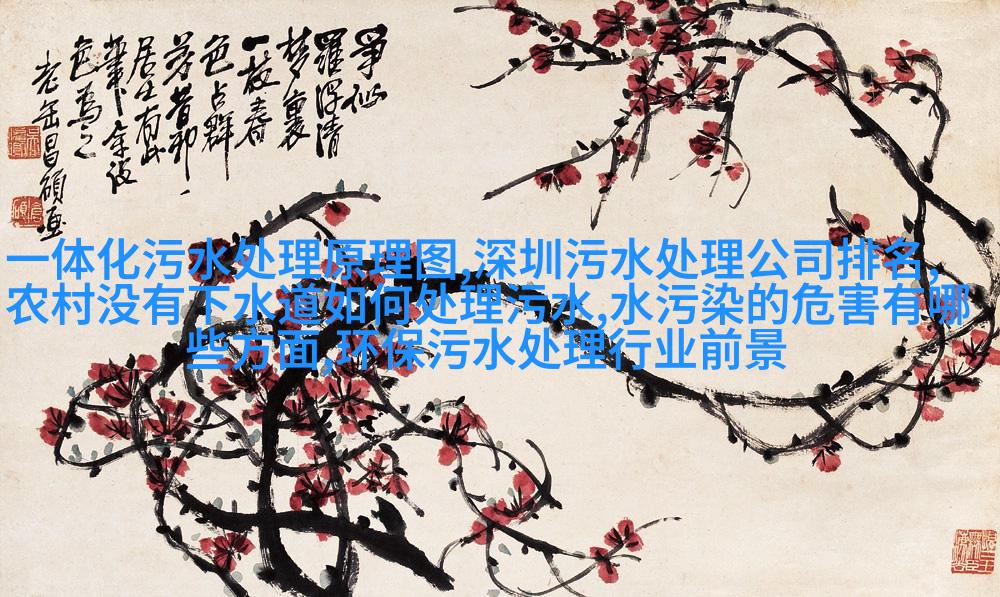 争似
羅浮清
梦裏
一枝春
色占群
芳昔邪
居士有此
筆下余仿
色為之
老缶昌碩画
一体化污水处理原理图,深圳污水处理公司排名,
农村没有下水道如何处理污水,水污染的危害有哪
些方面,环保污水处理行业前景